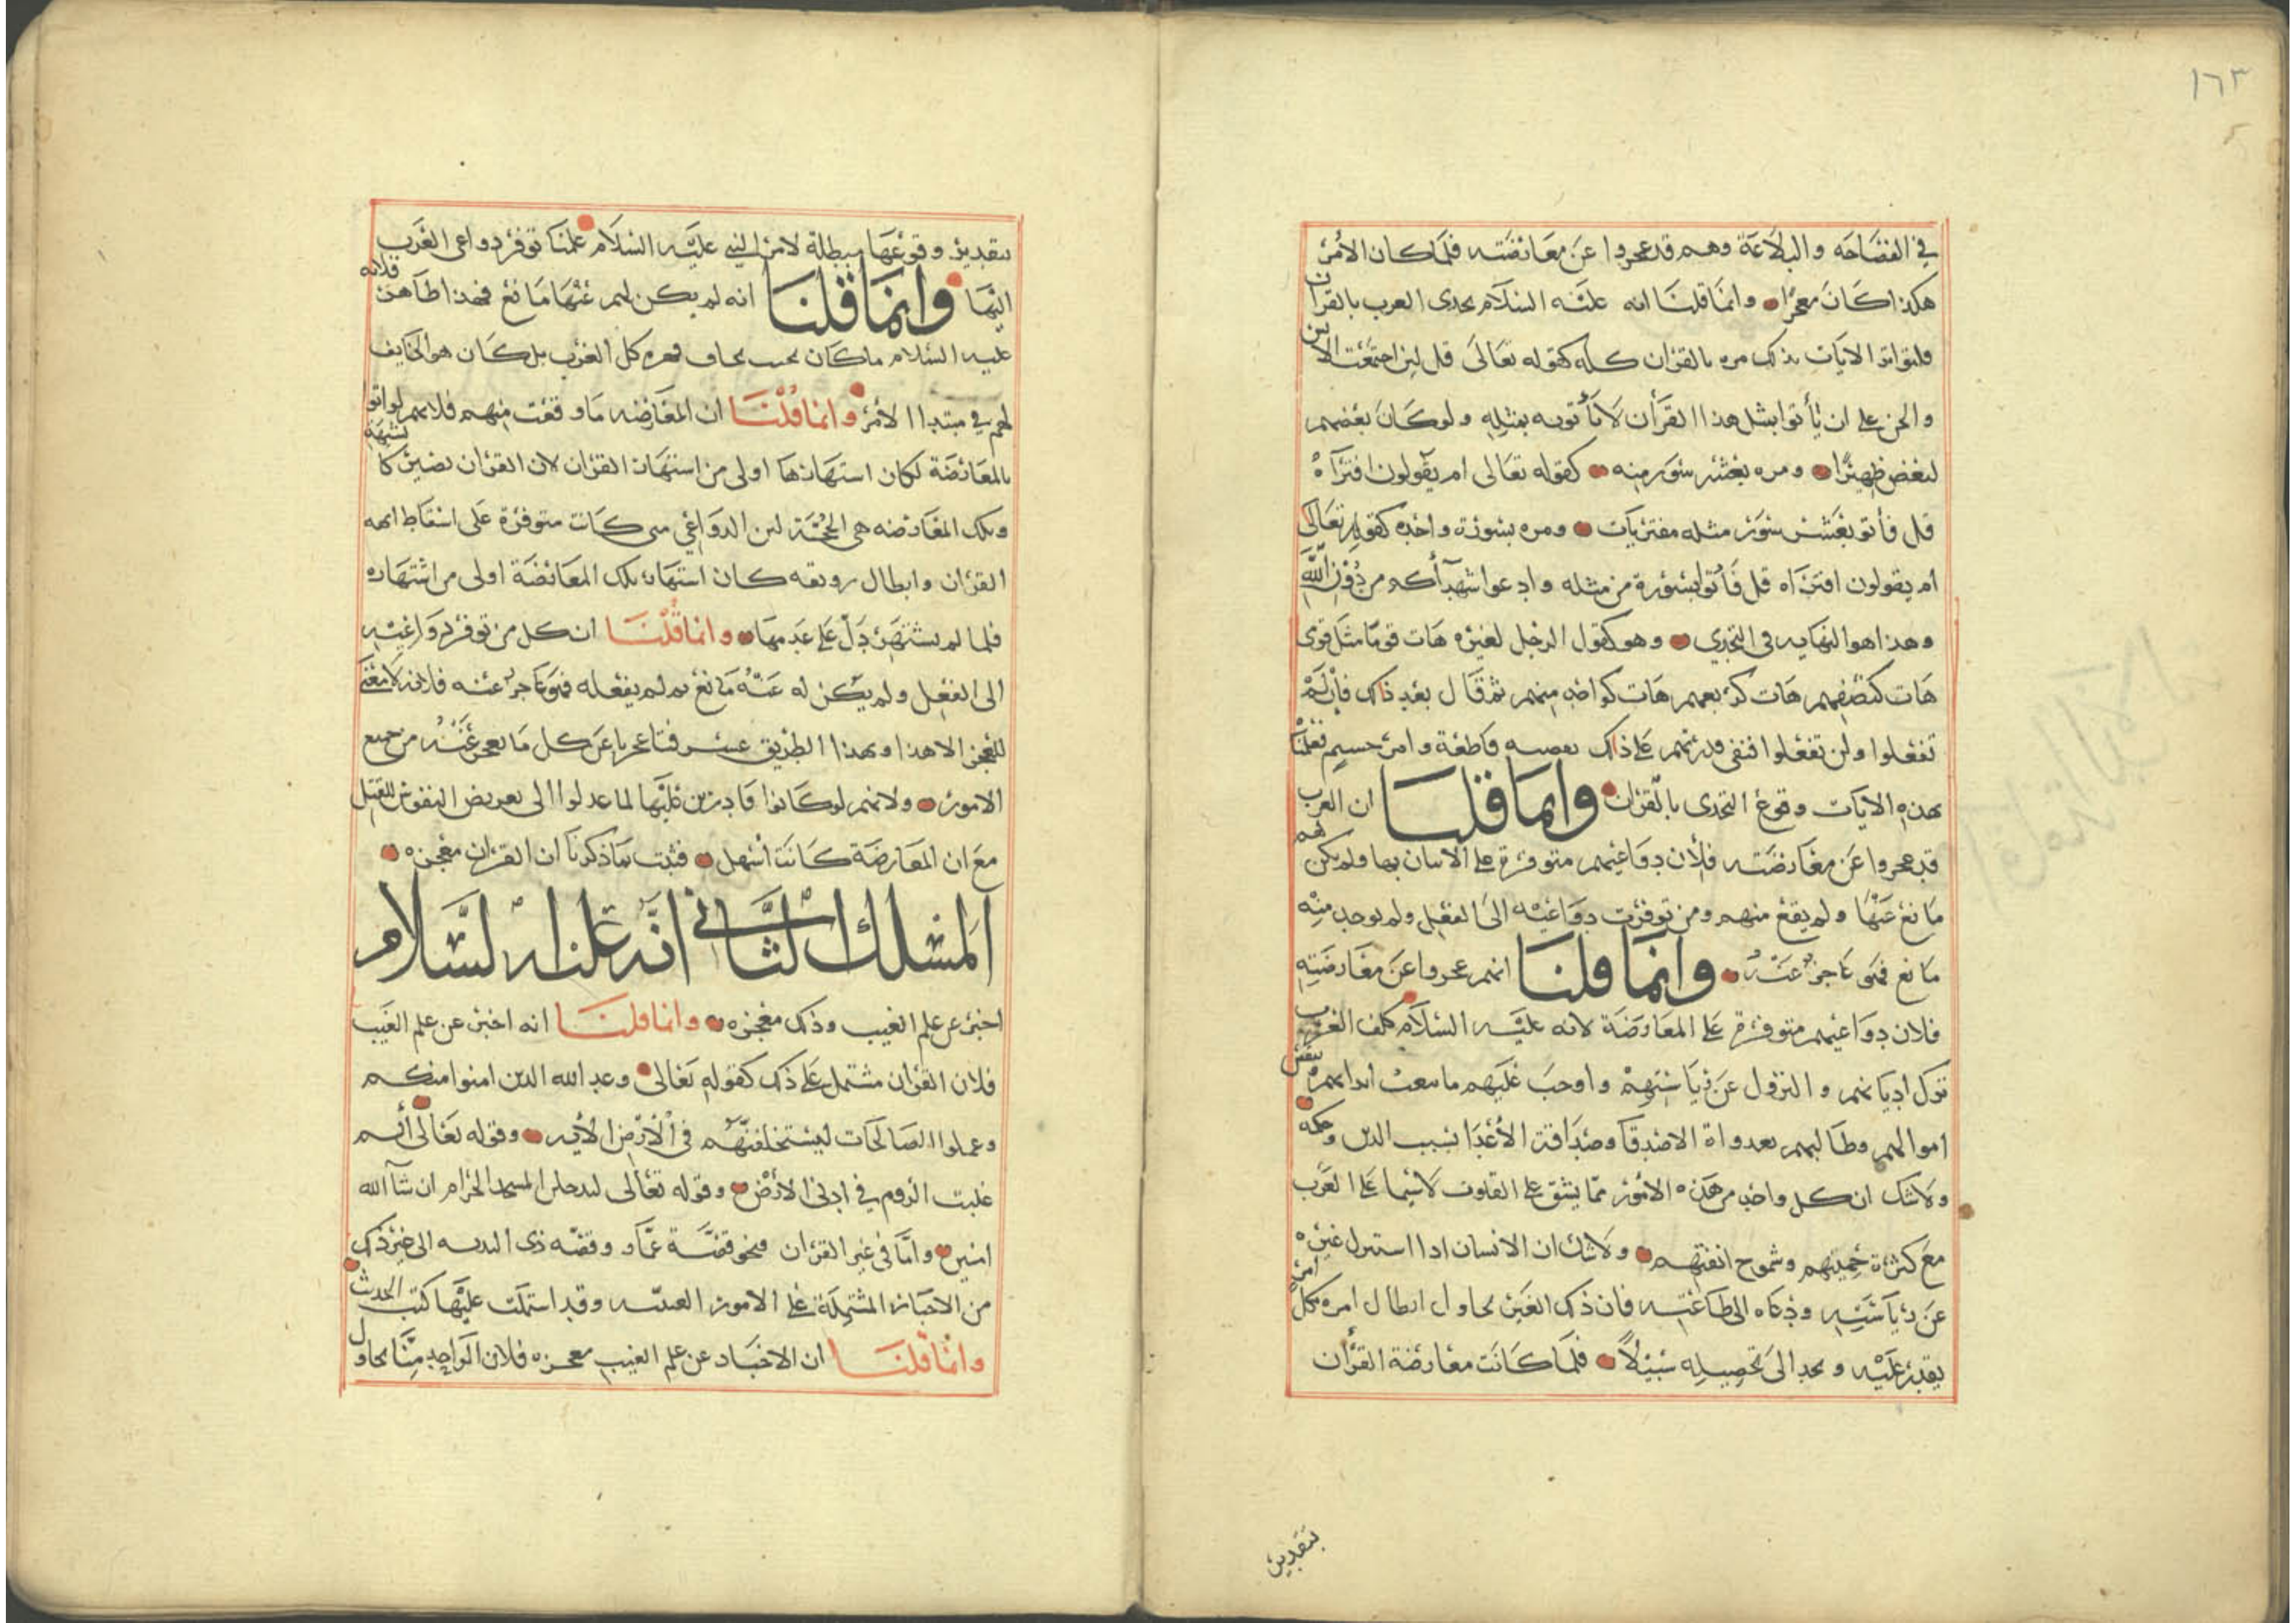 ١٦٣
في الفصاحه والبلاغة وهم قد عجزوا عن معارضته فلما كان الأمر
هكذا كان معجزا وانما قلنا انه عليه السلام تحدى العرب بالقران
فلتواتر الايات بذلك مره بالقران كله كقوله تعالى قل لين اجتمعت الانس
والجن على ان يأتوا بمثل هذا القرأن لا يأتون بمثله ولو كان بعضهم
لبعض ظهيرًا ومره بعشر سور منه كقوله تعالى ام يقولون افتراه
قل فأتو بعشر سور مثله مفتريات ومره بسورة واحده كقوله تعالى
ام يقولون افتراه قل فأتوا بسورة من مثله وادعوا شهدآأكم من دون الله
وهذا هو النهايه في التحدي وهو كقول الرجل لغيره هات قومًا مثل قومى
هات كنصفهم هات كربعهم هات كواحد منهم ثم قال بعد ذلك فإن لم
تفعلوا ولن تفعلوا فنفى قدرتهم على ذلك قاطعة وامر جسيم فعلمنا
بهذه الايات وقوع التحدى بالقران وانما قلنا ان العرب
قد عجزوا عن معارضته فلأن دواعيهم متوفرة على الاتيان بها ولم يكن لهم
مانع عنها ولم يقع منهم ومن توفرت دواعيه الى الفعل ولم يوجد منه
مانع فهو عاجز عنه وانما قلنا انهم عجزوا عن معارضته
فلان دواعيهم متوفرة على المعارضة لانه عليه السلام كلف العرب
ترك اديانهم والنزول عن رياستهم واوجب عليهم ما يتعب ابدانهم وينقص
اموالهم وطالبهم بعداوة الاصدقا وصداقة الأعدا بسبب الدين وحكه
ولا شك ان كل واحد من هذه الامور مما يشق على القلوب لا سيما على العرب
مع كثرة حميتهم وشموخ انفتهم ولا شك ان الانسان اذا استنزل غيره
عن رياسته ودعاه الى طاعته فان ذلك الغير يحاول ابطال امره بكل امر
يقدر عليه ويجد الى تحصيله سبيلاً فلما كانت معارضة القرأن
بتقدير
بتقدير وقوعها مبطلة لامر النبي عليه السلام علمنا توفر دواعى العرب
اليها وانما قلنا انه لم يكن لهم عنها مانع فهذا ظاهر فلانه
عليه السلام ما كان بحيث يخاف قهره كل العرب بل كان هو الخايف
لهم في مبتدا الأمر وانما قلنا ان المعارضه ما وقعت منهم فلانهم لو اتوا
بالمعارضة لكان اشتهارها اولى من اشتهار القران لان القران يصير كالشبهة
وتلك المعارضه هى الحجة لان الدواعي متى كانت متوفرة على اسقاط ابهه
القران وابطال رونقه كان اشتهار تلك المعارضة اولى من اشتهاره
فلما لم يشتهر دل على عدمها وانما قلنا ان كل من توفر دواعيه
الى الفعل ولم يكن له عنه مانع ثم لم يفعله فهو عاجز عنه فلانه لا معنى
للعجز الا هذا وبهذا الطريق عجزنا عن كل ما نعجز عنه من جميع
الامور ولانهم لو كانوا قادرين عليها لما عدلوا الى تعريض النفوس للقتل
مع ان المعارضة كانت أسهل فثبت بما ذكرنا ان القران معجزه
المسلك الثاني انه عليه السلام
اخبر عن علم الغيب وذلك معجزه وانما قلنا انه اخبر عن علم الغيب
فلان القران مشتمل على ذلك كقوله تعالى وعد الله الذين امنوا منكم
وعملوا الصالحات ليستخلفنهم في الأرض الأيه وقوله تعالى ألم
غلبت الروم في ادنى الأرض وقوله تعالى لتدخلن المسجد الحرام ان شآ الله
امنين وأما في غير القران فنحو قصة عمار وقصه ذى الثديه الى غير ذلك
من الاخبار المشتملة على الامور الغيبيه وقد اشتملت عليها كتب الحديث
وانما قلنا ان الاخبار عن علم الغيب معجزه فلان الواحد منا يحاول